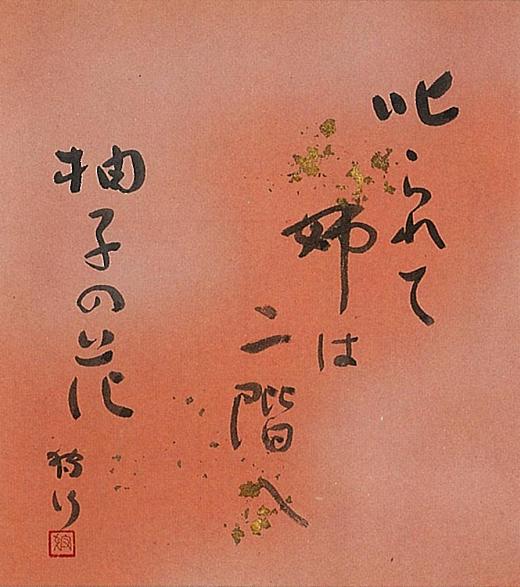 叱られて
姉は
二階へ
柚子の花
狩行